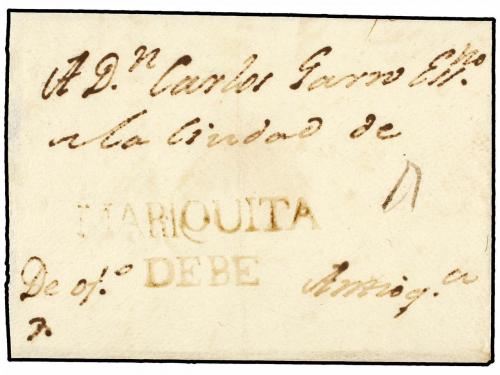 A D.n Carlos Garro Ess.no
a la Ciudad de
MARIQUITA
DEBE
De of.o Antioq.a